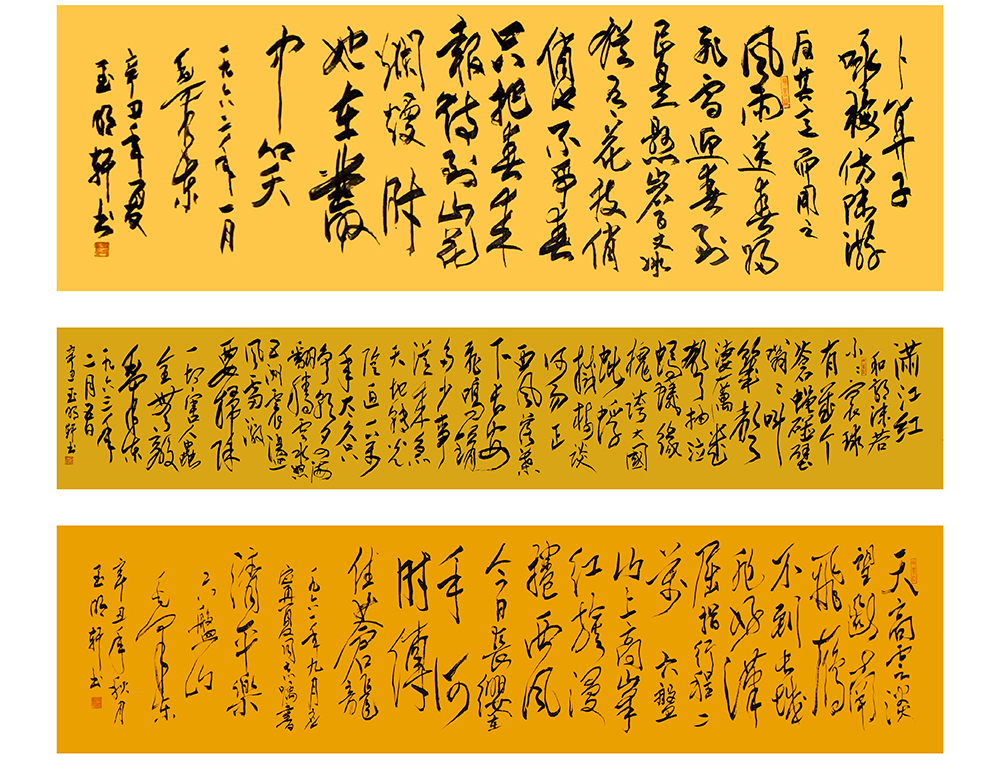 卜算子
咏梅仿陆游
反其意而用之
风雨送春归
飞雪迎春到
已是悬岩百丈冰
犹有花枝俏
俏也不争春
只把春来
报待到山花
烂熳时
她在丛
中笑
一九六二年一月
毛泽东
辛丑年夏
玉明轩书
满江红
和郭沫若
小小寰球
有几个
苍蝇碰壁
嗡嗡叫
几声
凄厉几
声抽泣
蚂蚁缘
槐夸大國
蚍蜉
撼树谈
何易正
西风落叶
下长安
飞鸣镝
多少事
从来急
天地转光
阴迫一万
年太久只
争朝夕四海
翻腾云水怒
五洲震荡
风雷激
要扫除
一切害人虫
全无敌
毛泽东
一九六三年
二月五日
辛丑玉明轩书
天高云淡
望断南
飞雁
不到长城
非好汉
屈指行程二
万 六盘
山上高峰
红旗漫
捲西风
今日长缨在
手何
时缚
住苍龙
一九六一年九月应
宁夏同志嘱书
清平乐
六盘山
毛泽东
辛丑年秋月
玉明轩书